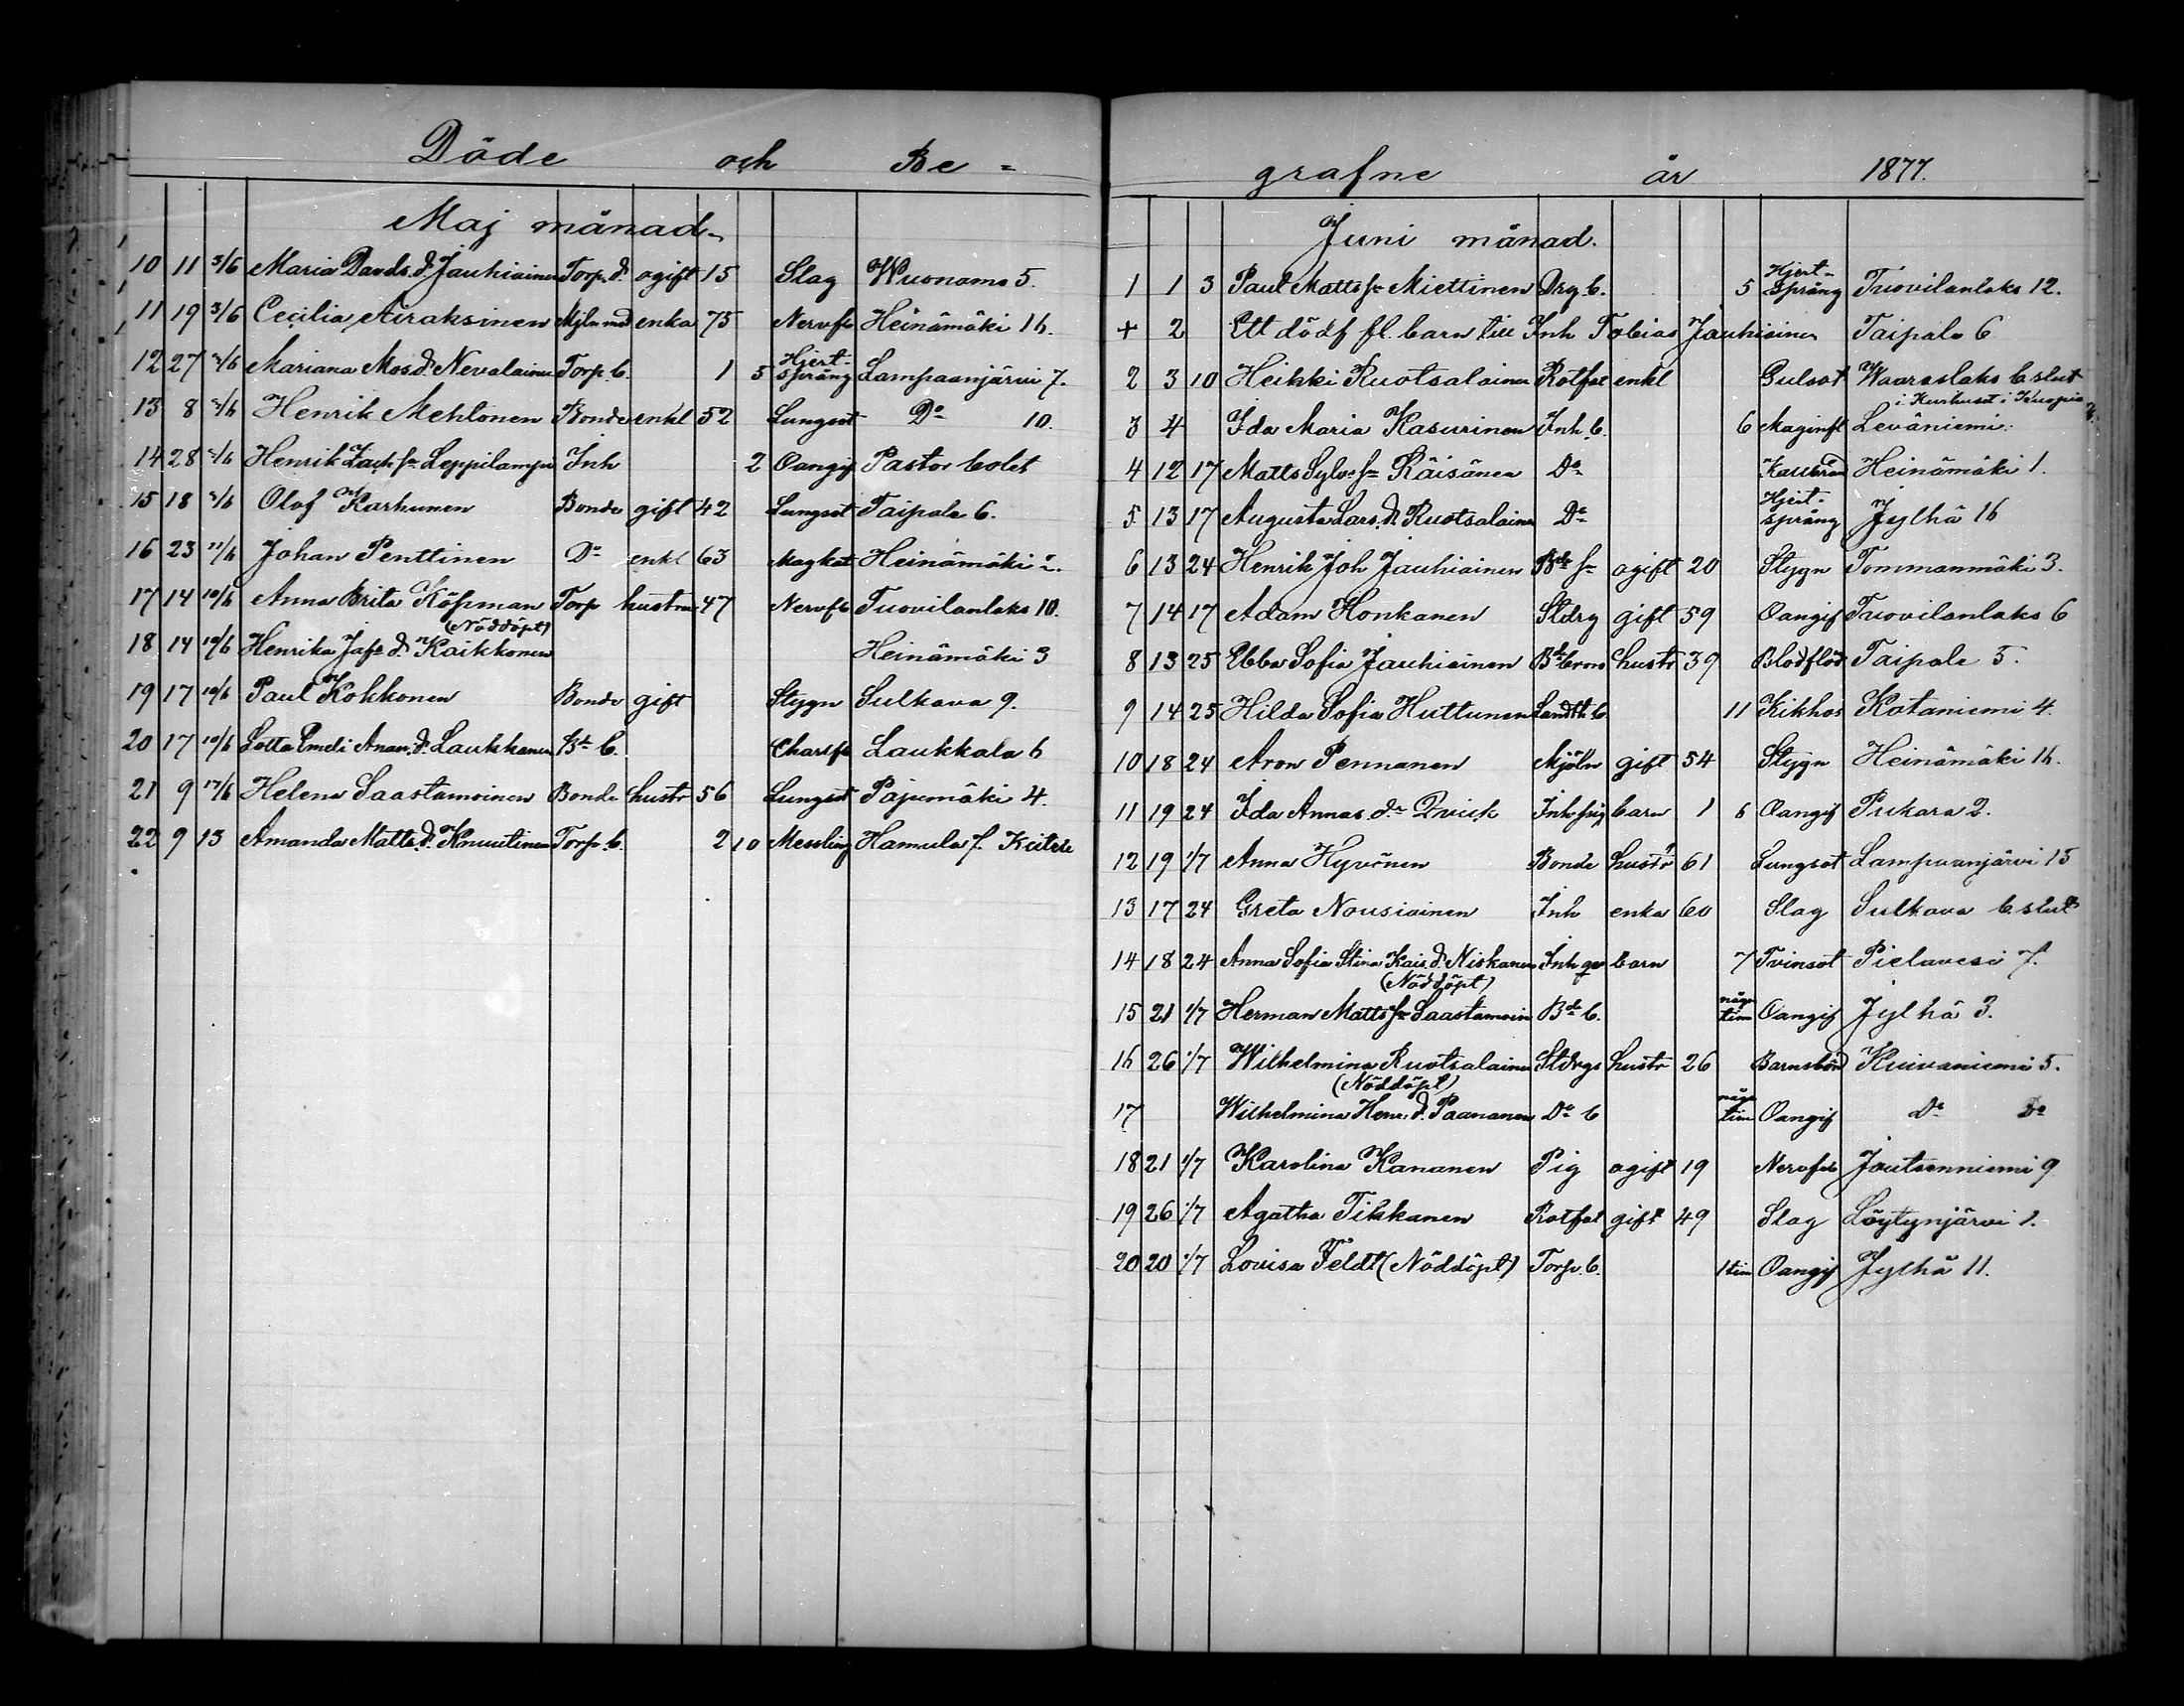 Döde och Be=
Maj månad
10 11 3/6 Maria Davds. d. Jauhiainen Torp. d. ogift 15 Slag Wuonamo 5.
11 19 3/6 Cecilia Airaksinen enka 75 Nervfb Heinämäki 16.
12 27 3/6 Mariana Mos.d. Nevalainen Torp. b. 1 5 Hjert-språng Lampaanjärvi 7.
13 8 Henrik Mehtonen Bonde enkl 52 Lungsot Do 10.
14 28 Henrik Zach. sn Leppilampi Inh 2 Oangif Pastor bolet
15 18 Olof Karhunen Bonde gift 42 Lungsot Taipale 6.
16 23 11/6 Johan Penttinen Do enkl 63 Magkat Heinämäki 2.
17 14 10/6 Anna Brita Köpman Torp hustru 47 Nervfb Tuovilanlaks 10.
(Nöddöpt)
18 14 10/6 Henrika Jafs d. Kaikkonen Heinämäki 3
19 17 10/6 Paul Kokkonen Bonde gift Stygn Sulkava 9.
20 17 10/6 Lotta Emeli Anan. d. Laukkanen Bd b. Laukkala 6
21 9 17/6 Helena Saastamoinen Bonde hustr 56 Lungsot Pajumäki 4.
22 9 13 Amanda Matts. d. Knuutinen Torp. b. 2 10 Messling Hamula 7.
grafne år 1877.
Juni månad.
1 1 3 Paul Matts sn Miettinen Drg b. 5 Hjert-språng Tuovilanlaks 12.
+ 2 Ett dödf fl. barn till Inh Tobias Jauhiainen Taipale 6
2 3 10 Heikki Ruotsalainen Rotfat enkl Gulsot Waaraslaks b. slut
i Kurhuset i Kuopio
3 4 Ida Maria Kasurinen Inh. b. 6 Maginfl Leväniemi.
4 12 17 Matts Sylv. sn Räisänen Do Kallbrand Heinämäki 1.
5 13 17 Augusta Lars. d. Ruotsalainen Do Hjert-språng Jylhä 16
6 13 24 Henrik Joh Jauhiainen Bde sn ogift 20 Stygn Tommanmäki 3.
7 14 17 Adam Honkanen Stdrg gift 59 Oangif Tuovilanlaks 6
8 13 25 Ebba Sofia Jauhiainen hustr 39 Blodflöd Taipale 5.
9 14 25 Hilda Sofia Huttunen Landtb b. 11 Kikhos Kotaniemi 4.
10 18 24 Aron Pennanen Mjöln gift 54 Stygn Heinämäki 16.
11 19 24 Ida Annas. dr Qvick Inh pig barn 1 6 Oangif Pukara 2.
12 19 1/7 Anna Hyvönen Bonde hustr 61 Lungsot Lampaanjärvi 15
13 17 24 Greta Nousiainen Inh enka 60 Slag Sulkava b. slut
14 18 24 Anna Sofia Stina Kais. d. Niskanen Inh qv barn 7 Tvinsot Pielavesi 7.
(Nöddöpt)
15 21 1/7 Herman Matts sn Saastamoin Bde b. någr tim Oangif Jylhä 3.
16 26 1/7 Wilhelmina Ruotsalainen Stdrgs hustr 26 Barnsbörd Kuivaniemi 5.
(Nöddöpt)
17 Wilhelmina Henr. d. Paananen Do b någr tim Oangif Do Do
18 21 1/7 Karolina Kananen Pig ogift 19 Nervfeb Joutsenniemi 9
19 26 1/7 Agatha Tikkanen Rotfat gift 49 Slag Löytynjärvi 1.
20 20 1/7 Lovisa Feldt (Nöddöpt) Torp. b. 1 tim Oangif Jylhä 11.